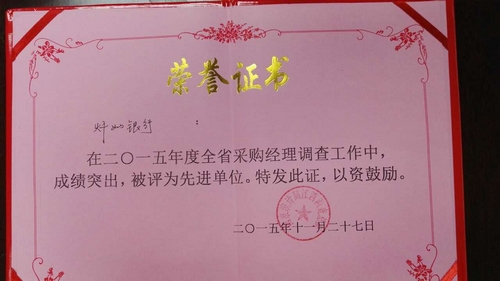 荣誉证书
银行：
在二〇一五年度全省采购经理调查工作中，
成绩突出，被评为先进单位。特发此证，以资鼓励。
二〇一五年十一月二十七日